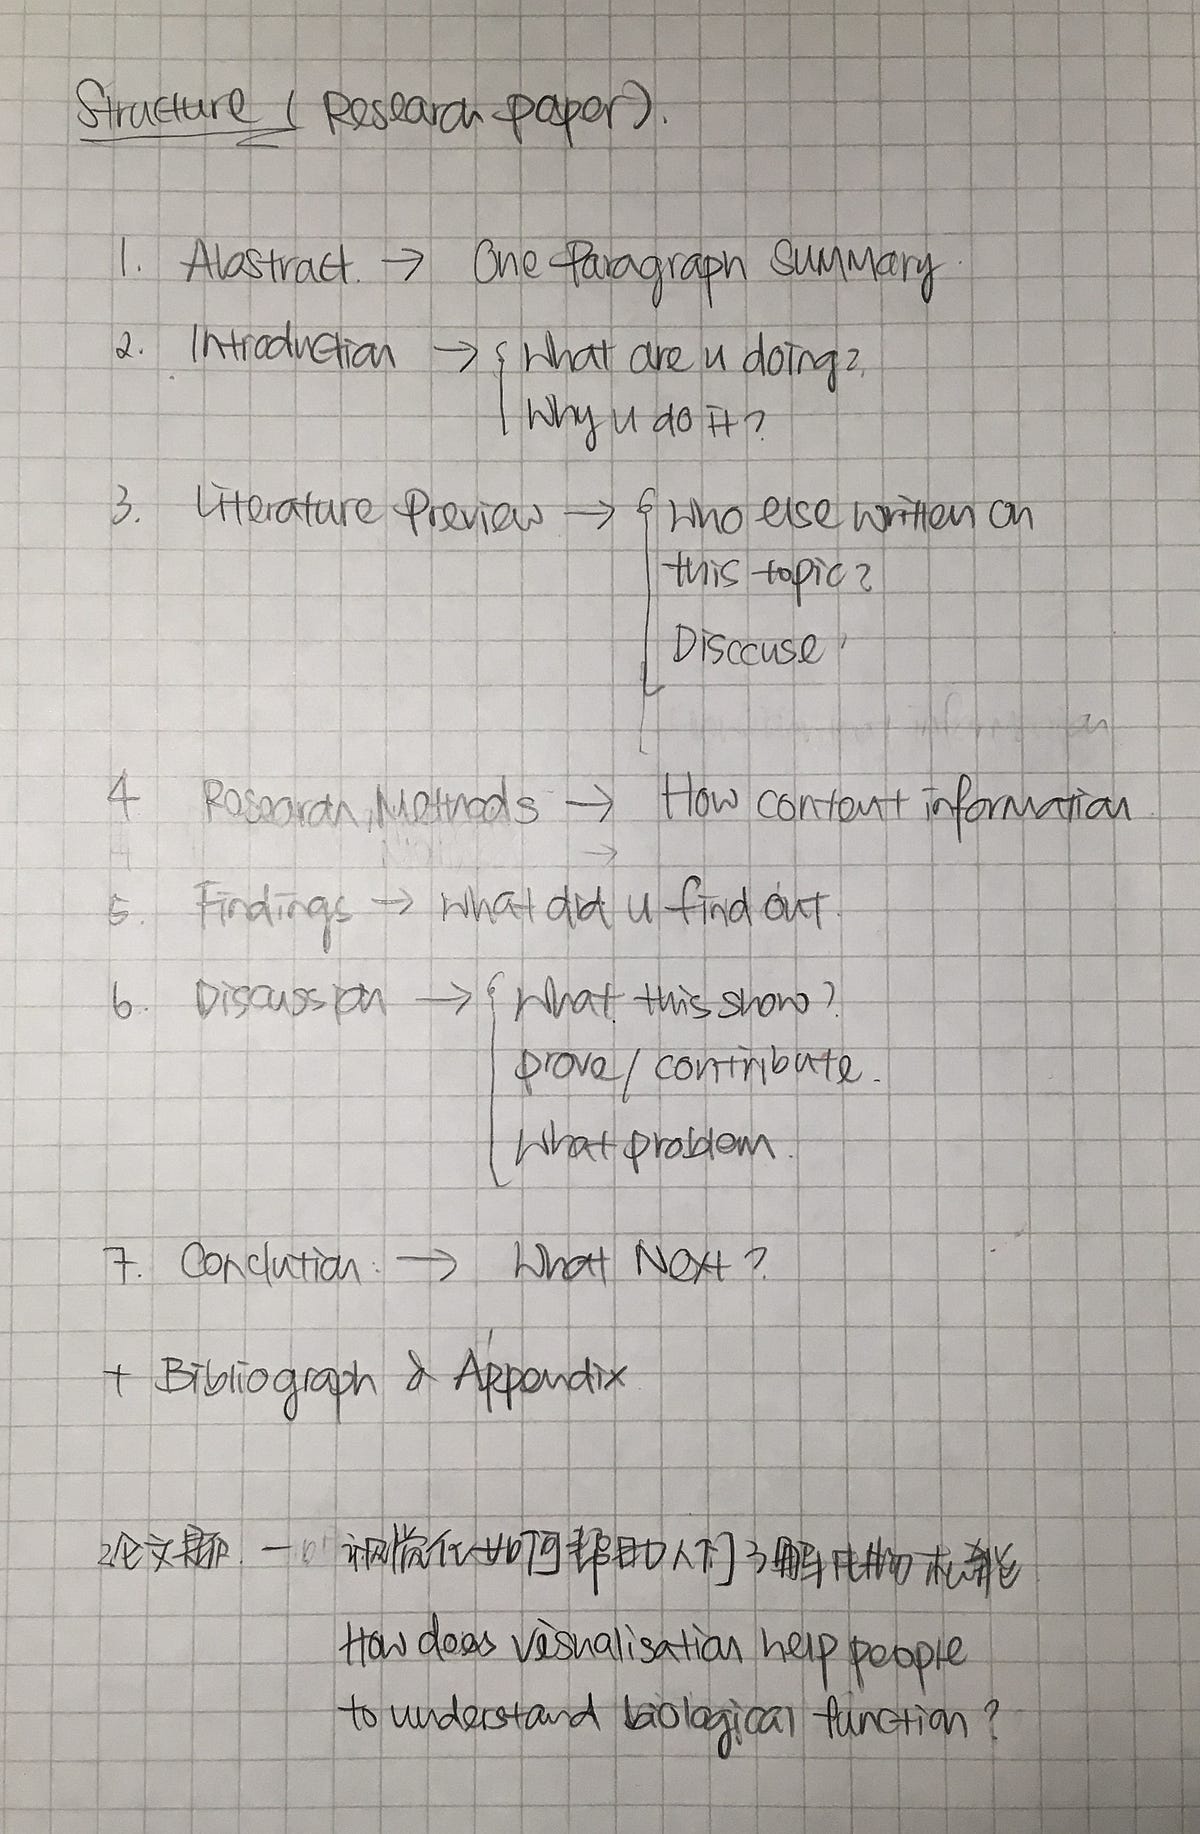 Structure (Research paper).
1. Abstract. → One Paragraph Summary.
2. Introduction → { What are u doing?
Why u do it?
3. Literature Preview → { Who else written on
this topic?
Disccuse
4 Research Methods → How content information
5. Findings → What did u find out.
6. Discussion → { What this show?
prove / contribute.
What problem.
7. Conclution: → What Next?
+ Bibliograph & Appendix
论文题. — 视觉化如何帮助人们了解生物机能
How does visualisation help people
to understand biological function?